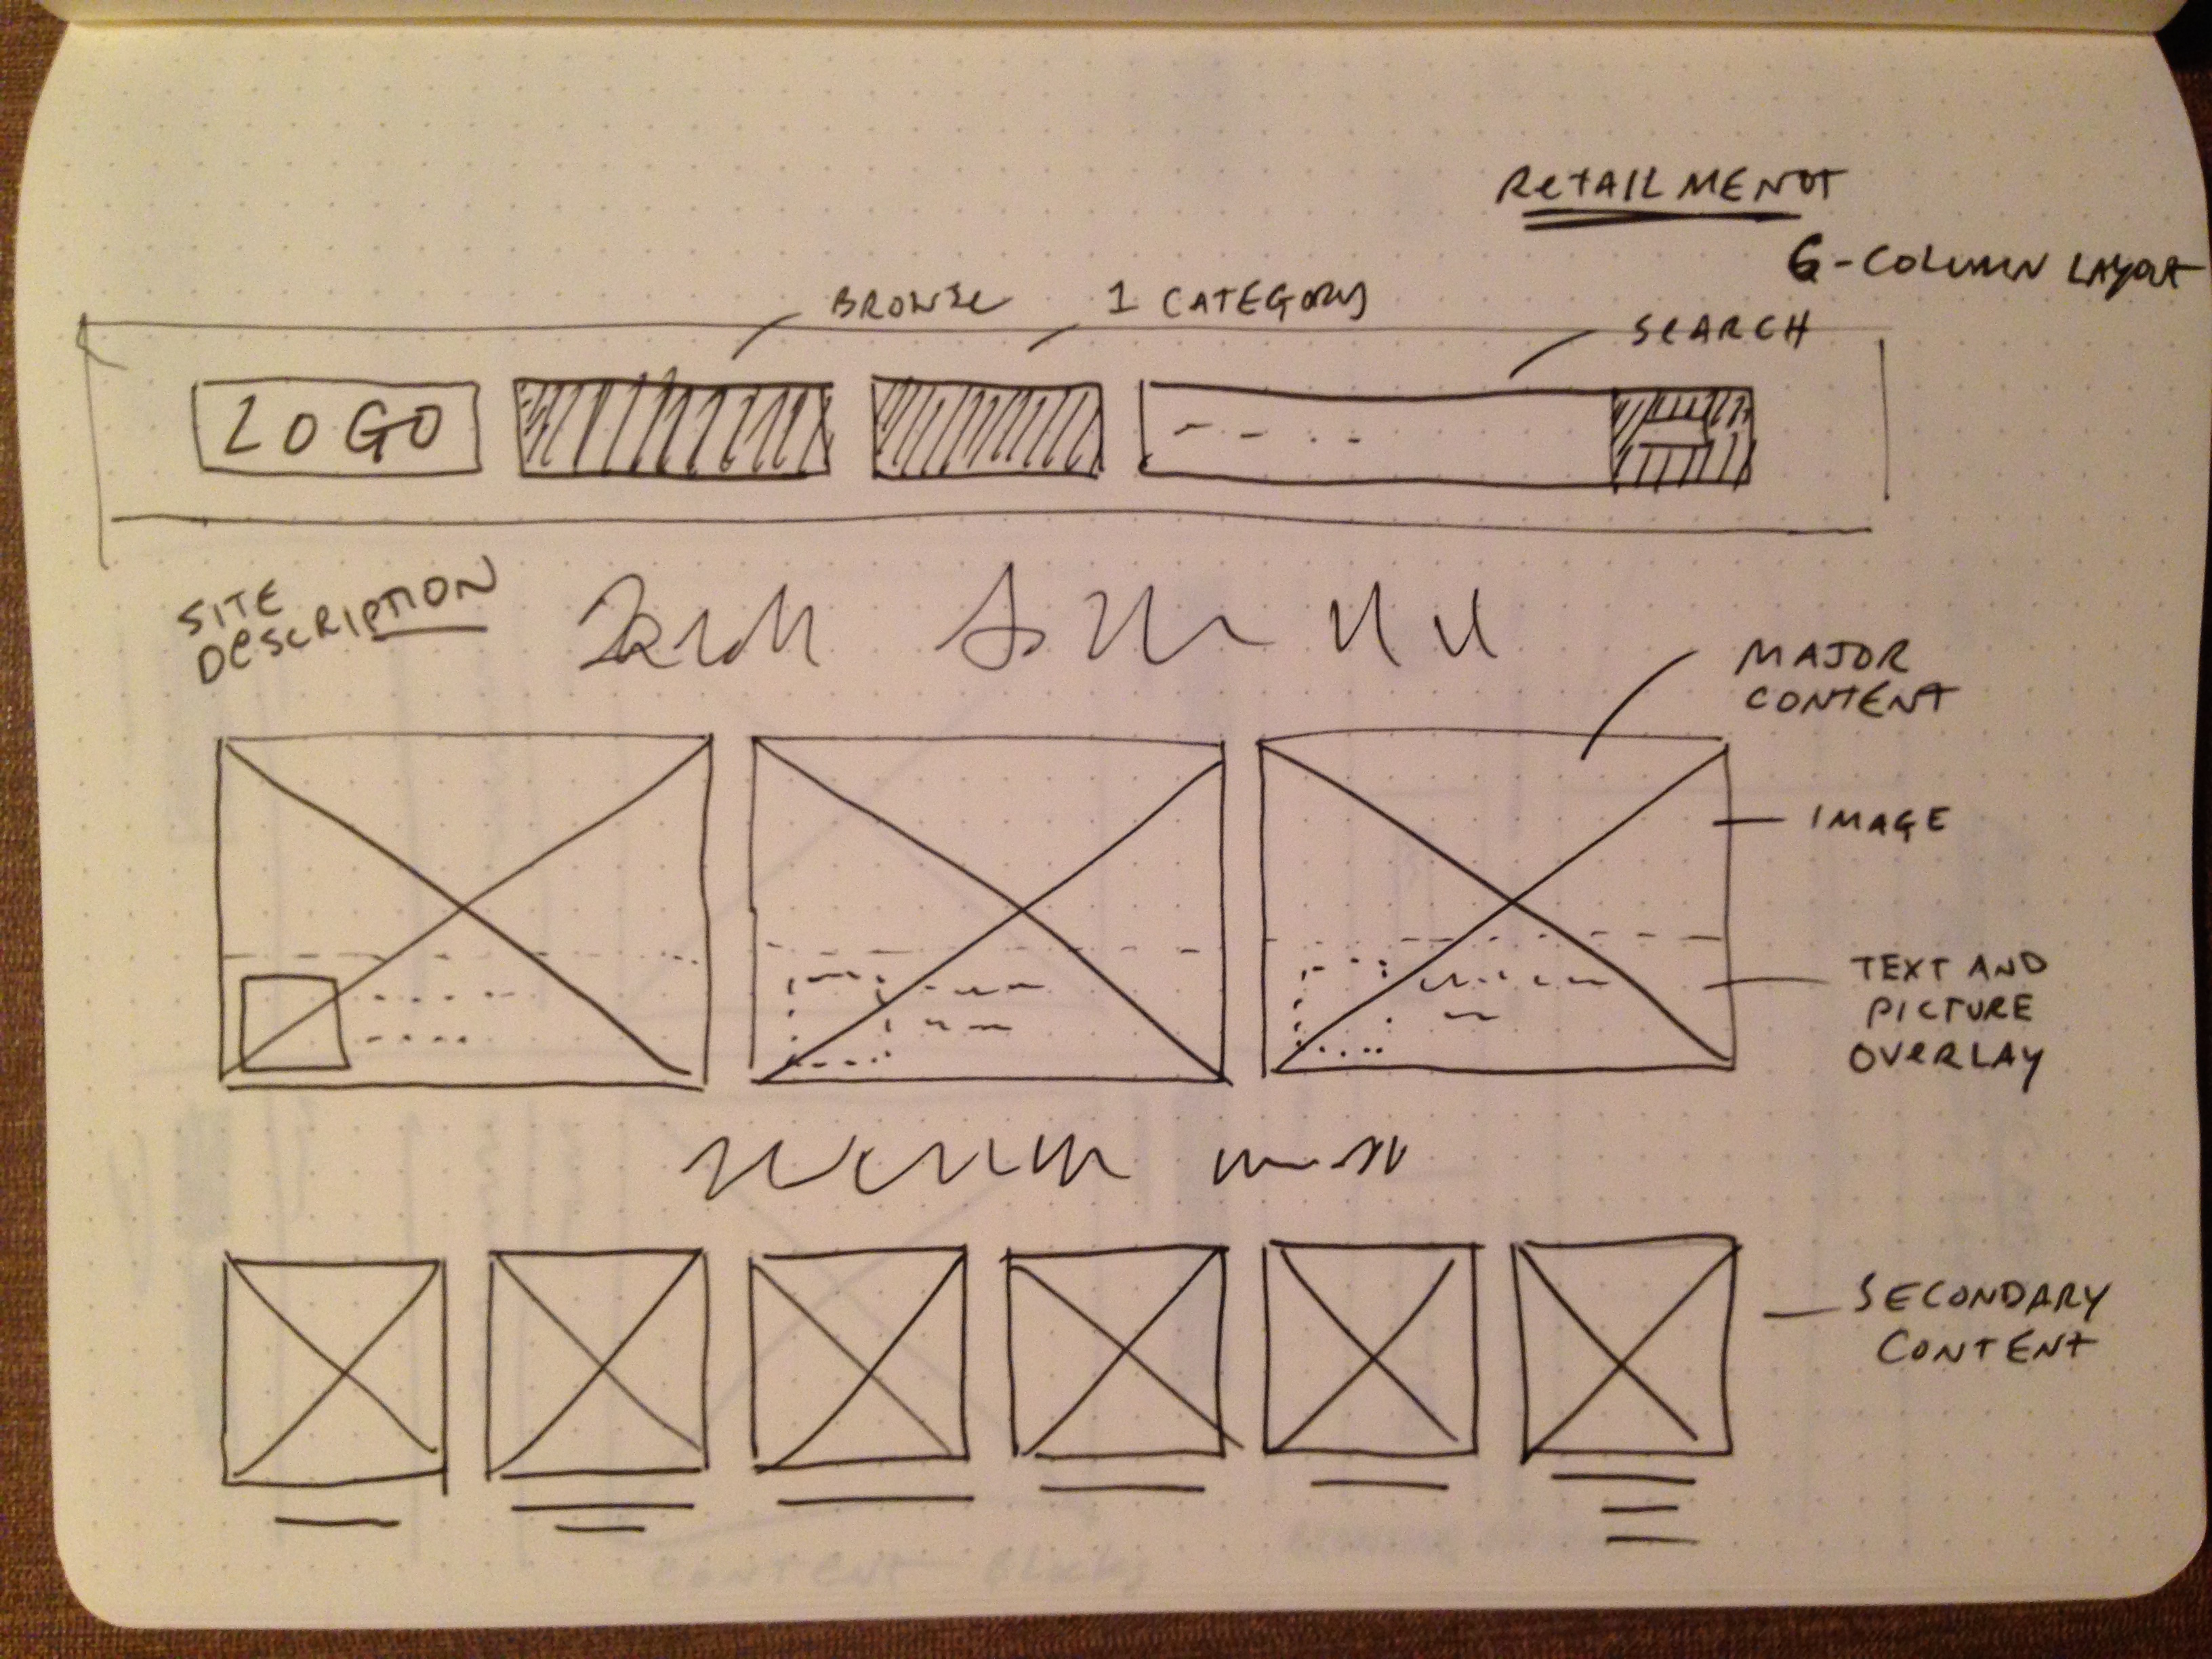 RETAILMENOT
6-COLUMN LAYOUT
BROWSE
1 CATEGORY
SEARCH
LOGO
SITE
DESCRIPTION
MAJOR
CONTENT
IMAGE
TEXT AND
PICTURE
OVERLAY
SECONDARY
CONTENT
CONTENT Blocks